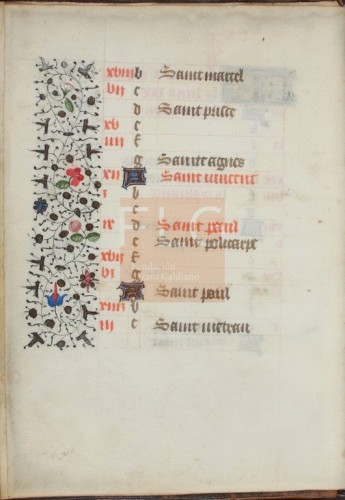 xviii b Saint marcel
vii c
d Saint prisce
xv e
iiii f
g Sainte agnes
xii A Saint vincent
i b
c
ix d Saint
e Saint policarpe
xvii f
vi g
A Saint paul
xiiii b
iii c Saint metran
FLG